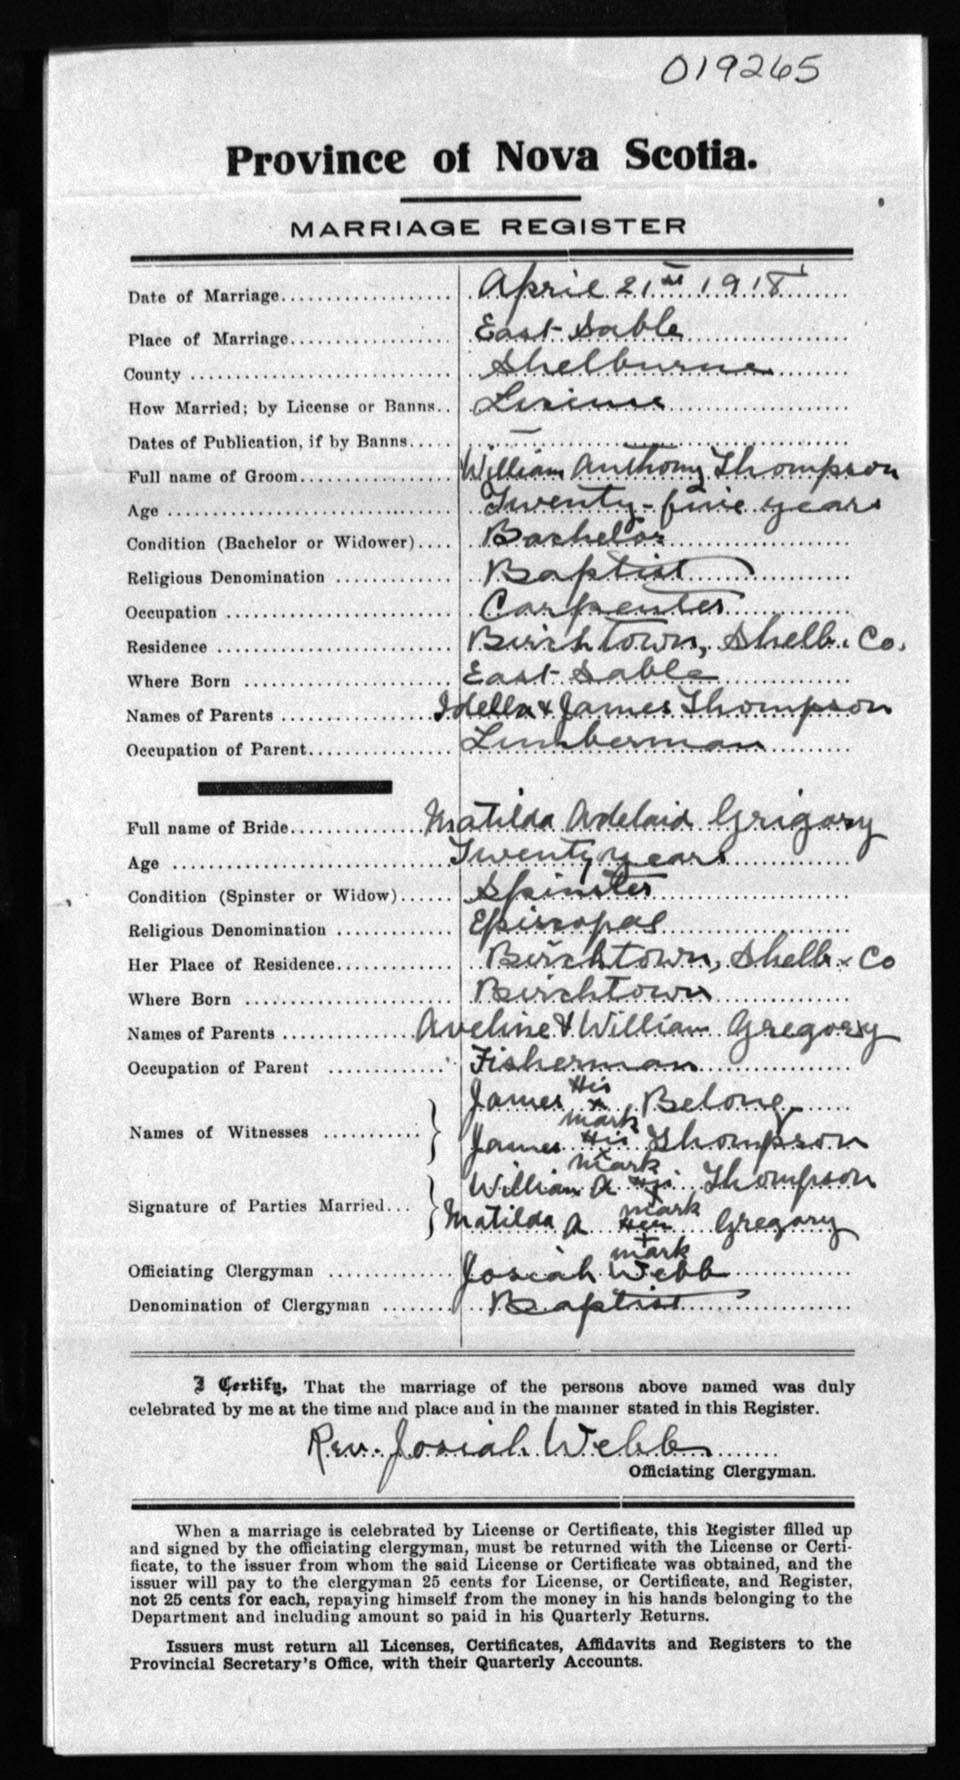 019265
Province of Nova Scotia.
MARRIAGE REGISTER
Date of Marriage.................... April 21st 1918
Place of Marriage................... East Sable
County ............................. Shelburne
How Married; by License or Banns.. Lisinse
Dates of Publication, if by Banns..... —
Full name of Groom.................. William Anthony Thompson
Age ................................ Twenty-five years
Condition (Bachelor or Widower).... Bachelor
Religious Denomination ............. Baptist
Occupation ......................... Carpenter
Residence .......................... Birchtown, Shelb. Co.
Where Born ......................... East Sable
Names of Parents ................... Idella & James Thompson
Occupation of Parent................ Lumberman
Full name of Bride.................. Matilda Adelaid Grigory
Age ................................ Twenty years
Condition (Spinster or Widow)...... Spinster
Religious Denomination ............. Episcopal
Her Place of Residence.............. Birchtown, Shelb. Co
Where Born ......................... Birchtown
Names of Parents ................... Aveline & William Gregory
Occupation of Parent ............... Fisherman
James His x mark Belong
Names of Witnesses ...........
James His mark Thompson
William A His mark Thompson
Signature of Parties Married...
Matilda A Her + mark Gregory
Officiating Clergyman .............. Josiah Webb
Denomination of Clergyman .......... Baptist
I Certify, That the marriage of the persons above named was duly
celebrated by me at the time and place and in the manner stated in this Register.
Rev. Josiah Webb
Officiating Clergyman.
When a marriage is celebrated by License or Certificate, this Register filled up
and signed by the officiating clergyman, must be returned with the License or Certi-
ficate, to the issuer from whom the said License or Certificate was obtained, and the
issuer will pay to the clergyman 25 cents for License, or Certificate, and Register,
not 25 cents for each, repaying himself from the money in his hands belonging to the
Department and including amount so paid in his Quarterly Returns.
Issuers must return all Licenses, Certificates, Affidavits and Registers to the
Provincial Secretary's Office, with their Quarterly Accounts.